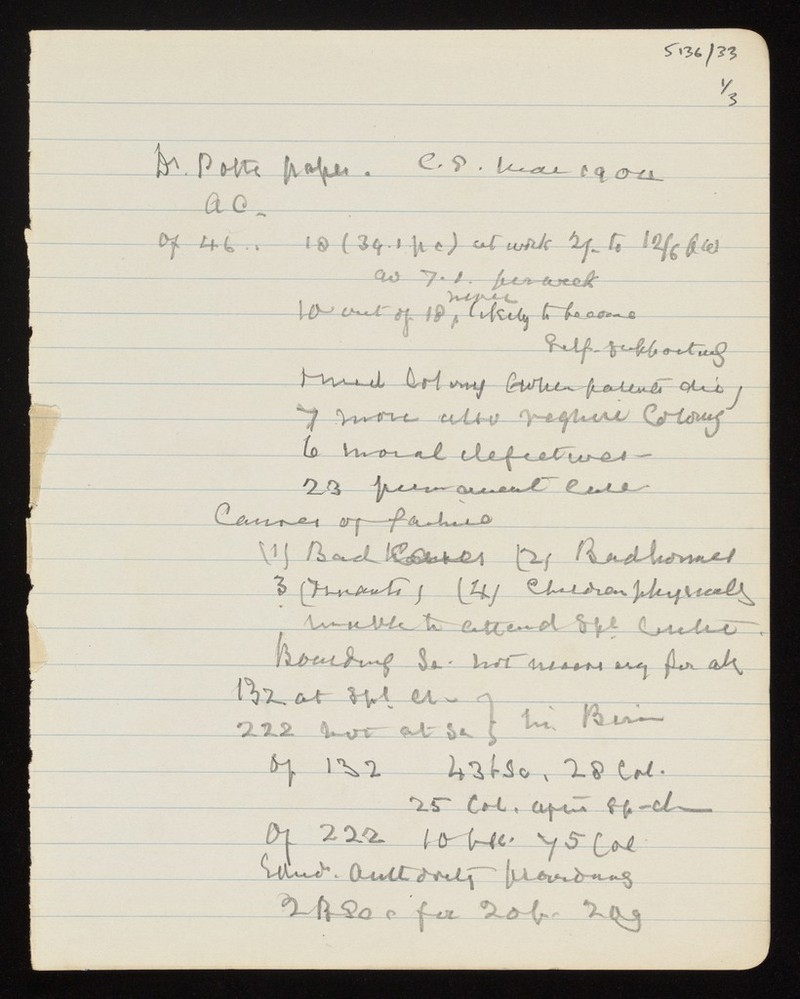 5136/33
1/3
Dr. Potts paper. C.S.
A C.
Of 46 .. 18 (39.1 p c) at work 2/- to 12/6 p w
av 7.1. per week
never
10 out of 18, likely to become
Self-supporting
need Colony (when parents die)
7 more also require Colony
6 moral defectives -
23 permanent care
Causes of failure
(1) Bad Cases (2) Bad homes
3 (Truants) (4) Children physically
unable to attend Spl. Centre.
Boarding Sc. not necessary for all
132 at Spl. Ch
222 not at Sc } in Birm
Of 132 43 b Sc, 28 Col.
25 Col. after Sp-ch
Of 222 10 75 Col
Educ. Authority providing
2 B Sc for 20 b. 20 g